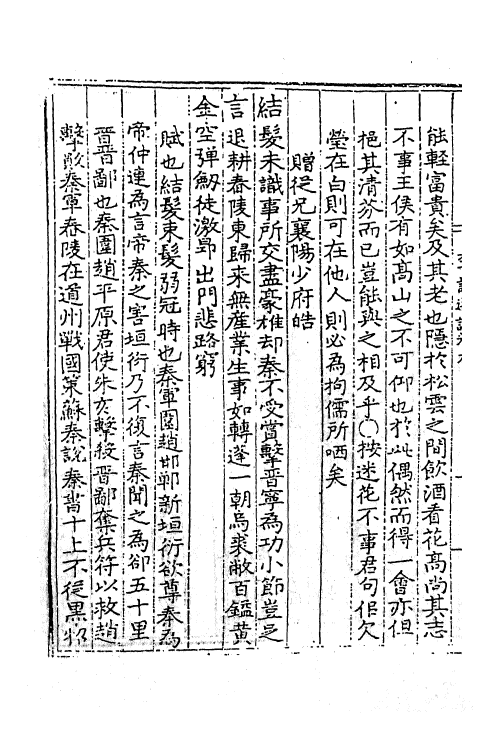 能輕富貴矣及其老也隱扵松雲之間飲酒看花髙尚其志
不事王侯有如髙山之不可仰也扵此偶然而得一會亦但
挹其清芬而已豈能與之相及乎〇按迷花不事君句但欠
瑩在白則可在他人則必為拘儒所哂矣
贈從兄襄陽少府皓
結髮未識事所交盡豪雄却秦不受賞擊晉寧為功小節豈足
言退耕舂陵東歸來無産業生事如轉蓬一朝烏裘敝百鎰黄
金空彈劒徒激昻出門悲路窮
賦也結髮束髮弱冠時也秦軍圍趙邯鄲新垣衍欲尊秦為
帝仲連為言帝秦之害垣衍乃不復言秦聞之為卻五十里
晉晉鄙也秦圍趙平原君使朱亥擊殺晉鄙奪兵符以救趙
擊敵秦軍舂陵在道州戰國策蘇秦說秦書十上不從黒貂